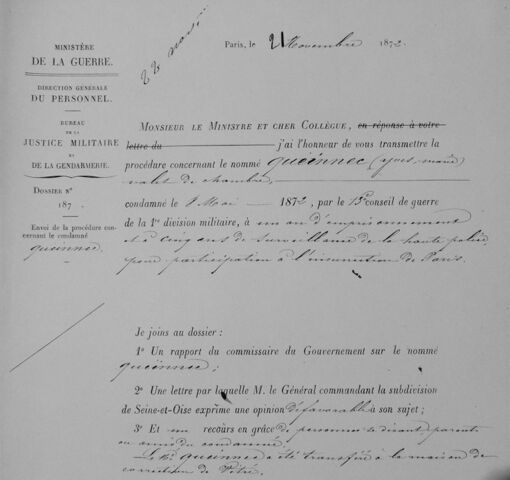 Paris, le 21 Novembre 1872.
22 nov
MINISTÈRE
DE LA GUERRE.
DIRECTION GÉNÉRALE
DU PERSONNEL.
BUREAU
DE LA
JUSTICE MILITAIRE
ET
DE LA GENDARMERIE.
DOSSIER N°
187
Envoi de la procédure con-
cernant le condamné
Queinnec
MONSIEUR LE MINISTRE ET CHER COLLÈGUE, en réponse à votre
lettre du j'ai l'honneur de vous transmettre la
procédure concernant le nommé Queinnec (Yves marie)
valet de chambre,
condamné le 8 Mai 1872, par le 13e conseil de guerre
de la 1re division militaire, à un an d'emprisonnement
et à cinq ans de surveillance de la haute police
pour participation à l'insurrection de Paris.
Je joins au dossier :
1° Un rapport du commissaire du Gouvernement sur le nommé
Queinnec;
2° Une lettre par laquelle M. le Général commandant la subdivision
de Seine-et-Oise exprime une opinion défavorable à son sujet ;
3° Et un recours en grâce de personnes se disant parents
ou amis du condamné.
Le né Queinnec a été transféré à la maison de
correction de Vitré.